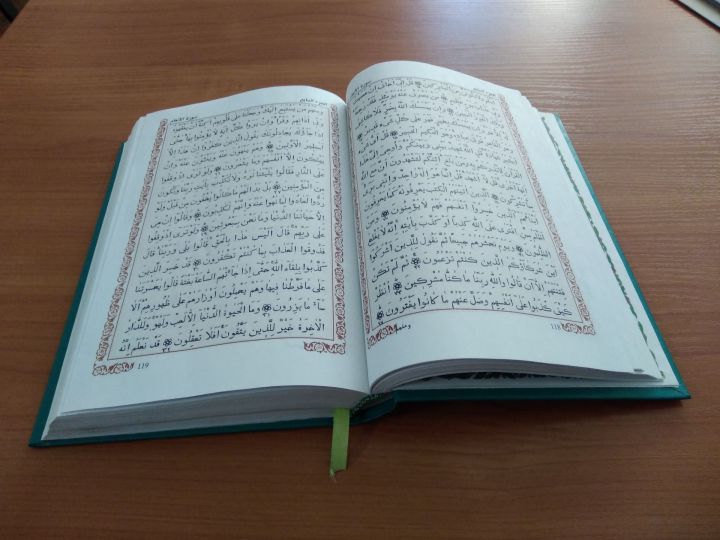 قُلْ اِنّ۪ٓي اَخَافُ اِنْ عَصَيْتُ
رَبّ۪ي عَذَابَ يَوْمٍ عَظ۪يمٍ مَنْ يُصْرَفْ عَنْهُ يَوْمَئِذٍ فَقَدْ رَحِمَهُ
وَذٰلِكَ الْفَوْزُ الْمُب۪ينُ وَاِنْ يَمْسَسْكَ اللّٰهُ بِضُرٍّ فَلَا كَاشِفَ
لَهُٓ اِلَّا هُوَ وَاِنْ يَمْسَسْكَ بِخَيْرٍ فَهُوَ عَلٰى كُلِّ شَيْءٍ قَد۪يرٌ
وَهُوَ الْقَاهِرُ فَوْقَ عِبَادِه۪ وَهُوَ الْحَك۪يمُ الْخَب۪يرُ قُلْ اَيُّ
شَيْءٍ اَكْبَرُ شَهَادَةً قُلِ اللّٰهُ شَه۪يدٌ بَيْن۪ي وَبَيْنَكُمْ وَاُو۫حِيَ اِلَيَّ
هٰذَا الْقُرْاٰنُ لِاُنْذِرَكُمْ بِه۪ وَمَنْ بَلَغَ اَئِنَّكُمْ لَتَشْهَدُونَ اَنَّ
مَعَ اللّٰهِ اٰلِهَةً اُخْرٰى قُلْ لَٓا اَشْهَدُ قُلْ اِنَّمَا هُوَ اِلٰهٌ وَاحِدٌ وَاِنَّن۪ي
بَر۪ٓيءٌ مِمَّا تُشْرِكُونَ اَلَّذ۪ينَ اٰتَيْنَاهُمُ الْكِتَابَ يَعْرِفُونَهُ كَمَا يَعْرِفُونَ
اَبْنَٓاءَهُمْ اَلَّذ۪ينَ خَسِرُٓوا اَنْفُسَهُمْ فَهُمْ لَا يُؤْمِنُونَ وَمَنْ
اَظْلَمُ مِمَّنِ افْتَرٰى عَلَى اللّٰهِ كَذِبًا اَوْ كَذَّبَ بِاٰيَاتِه۪ اِنَّهُ لَا يُفْلِحُ
الظَّالِمُونَ وَيَوْمَ نَحْشُرُهُمْ جَم۪يعًا ثُمَّ نَقُولُ لِلَّذ۪ينَ اَشْرَكُٓوا
اَيْنَ شُرَكَٓاؤُ۬كُمُ الَّذ۪ينَ كُنْتُمْ تَزْعُمُونَ ثُمَّ لَمْ تَكُنْ
فِتْنَتُهُمْ اِلَّٓا اَنْ قَالُوا وَاللّٰهِ رَبِّنَا مَا كُنَّا مُشْرِك۪ينَ اُنْظُرْ
كَيْفَ كَذَبُوا عَلٰٓى اَنْفُسِهِمْ وَضَلَّ عَنْهُمْ مَا كَانُوا يَفْتَرُونَ
وَمِنْهُمْ
118
سورة الأنعام
وَمِنْهُمْ مَنْ يَسْتَمِعُ اِلَيْكَ وَجَعَلْنَا عَلٰى قُلُوبِهِمْ اَكِنَّةً اَنْ يَفْقَهُوهُ
وَف۪ٓي اٰذَانِهِمْ وَقْرًا وَاِنْ يَرَوْا كُلَّ اٰيَةٍ لَا يُؤْمِنُوا بِهَا حَتّٰٓى
اِذَا جَٓاؤُ۫كَ يُجَادِلُونَكَ يَقُولُ الَّذ۪ينَ كَفَرُٓوا اِنْ هٰذَٓا اِلَّٓا
اَسَاط۪يرُ الْاَوَّل۪ينَ وَهُمْ يَنْهَوْنَ عَنْهُ وَيَنْـَٔوْنَ عَنْهُ وَاِنْ
يُهْلِكُونَ اِلَّٓا اَنْفُسَهُمْ وَمَا يَشْعُرُونَ وَلَوْ تَرٰٓى اِذْ وُقِفُوا
عَلَى النَّارِ فَقَالُوا يَا لَيْتَنَا نُرَدُّ وَلَا نُكَذِّبَ بِاٰيَاتِ رَبِّنَا وَنَكُونَ
مِنَ الْمُؤْمِن۪ينَ بَلْ بَدَا لَهُمْ مَا كَانُوا يُخْفُونَ مِنْ قَبْلُ وَلَوْ
رُدُّوا لَعَادُوا لِمَا نُهُوا عَنْهُ وَاِنَّهُمْ لَكَاذِبُونَ وَقَالُٓوا اِنْ هِيَ
اِلَّا حَيَاتُنَا الدُّنْيَا وَمَا نَحْنُ بِمَبْعُوث۪ينَ وَلَوْ تَرٰٓى اِذْ وُقِفُوا
عَلٰى رَبِّهِمْ قَالَ اَلَيْسَ هٰذَا بِالْحَقِّ قَالُوا بَلٰى وَرَبِّنَا قَالَ
فَذُوقُوا الْعَذَابَ بِمَا كُنْتُمْ تَكْفُرُونَ قَدْ خَسِرَ الَّذ۪ينَ
كَذَّبُوا بِلِقَٓاءِ اللّٰهِ حَتّٰٓى اِذَا جَٓاءَتْهُمُ السَّاعَةُ بَغْتَةً قَالُوا يَا حَسْرَتَنَا
عَلٰى مَا فَرَّطْنَا ف۪يهَا وَهُمْ يَحْمِلُونَ اَوْزَارَهُمْ عَلٰى ظُهُورِهِمْ اَلَا
سَٓاءَ مَا يَزِرُونَ وَمَا الْحَيٰوةُ الدُّنْيَٓا اِلَّا لَعِبٌ وَلَهْوٌ وَلَلدَّارُ
الْاٰخِرَةُ خَيْرٌ لِلَّذ۪ينَ يَتَّقُونَ اَفَلَا تَعْقِلُونَ ٣٢ قَدْ نَعْلَمُ اِنَّهُ
119